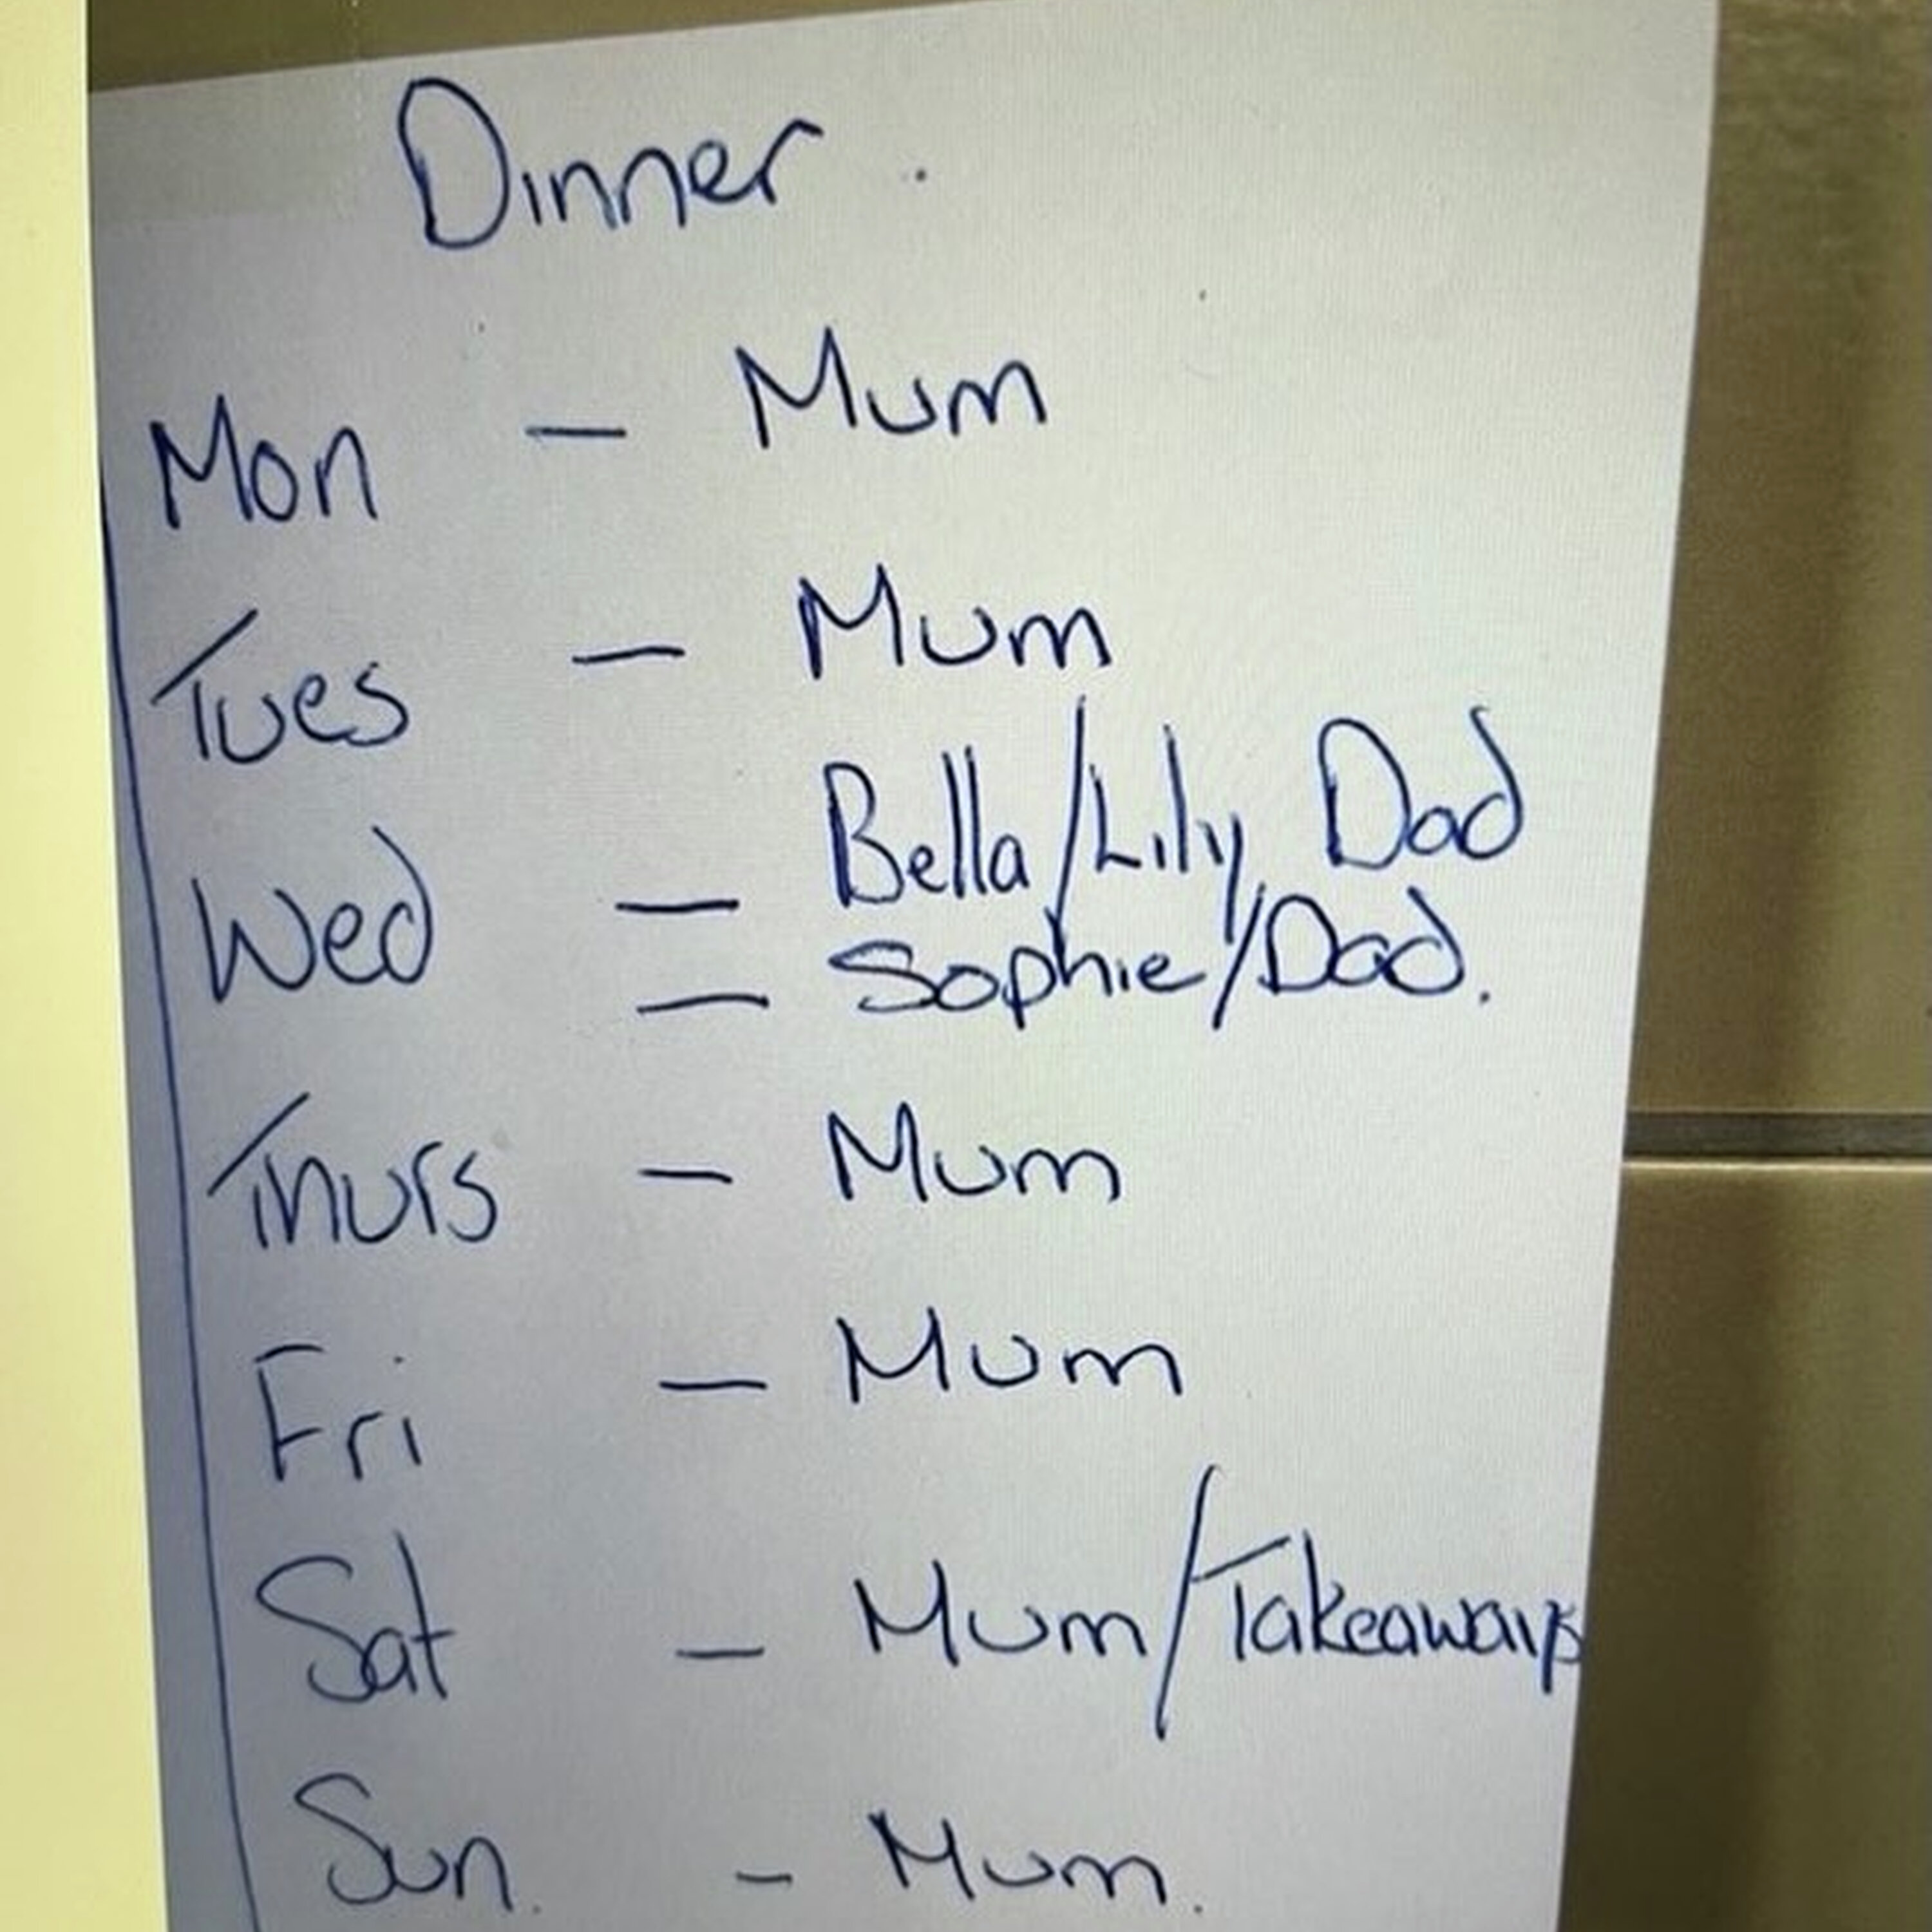 Dinner.
Mon - Mum
Tues - Mum
Wed - Bella/Lily Dad
- Sophie/Dad.
Thurs - Mum
Fri - Mum
Sat - Mum/Takeaways
Sun. - Mum.